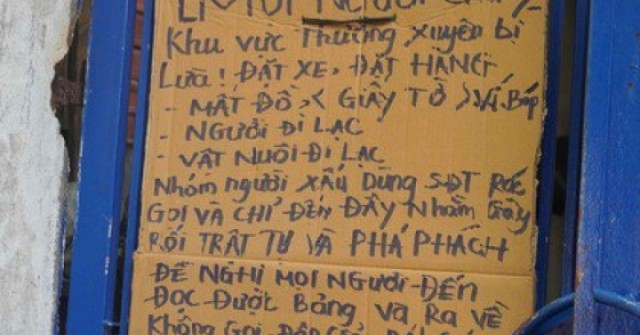 Khu vực Thường xuyên bị
Lừa! ĐẶT XE, ĐẶT HÀNG
- MẤT ĐỒ, < GIẤY TỜ > Ví. Bóp
- NGƯỜI ĐI LẠC
- VẬT NUÔI ĐI LẠC
Nhóm người XẤU DÙNG SĐT RÁC
GỌI VÀ CHỈ ĐẾN ĐÂY Nhằm Gây
RỐI TRẬT TỰ VÀ PHÁ PHÁCH
ĐỀ NGHỊ MỌI NGƯỜI ĐẾN
ĐỌC ĐƯỢC BẢNG VÀ RA VỀ
KHÔNG GỌI